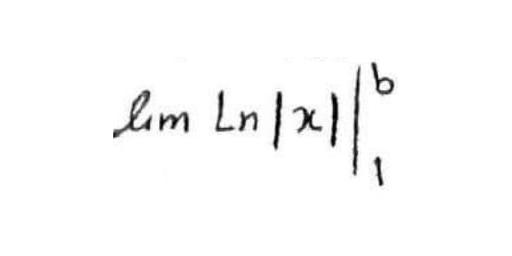 lim Ln|x||₁ᵇ